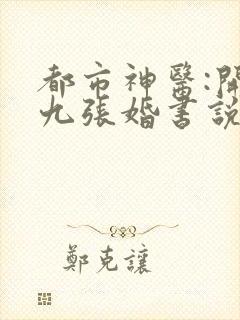 都市神醫:開
九張婚書說
鄭克讓